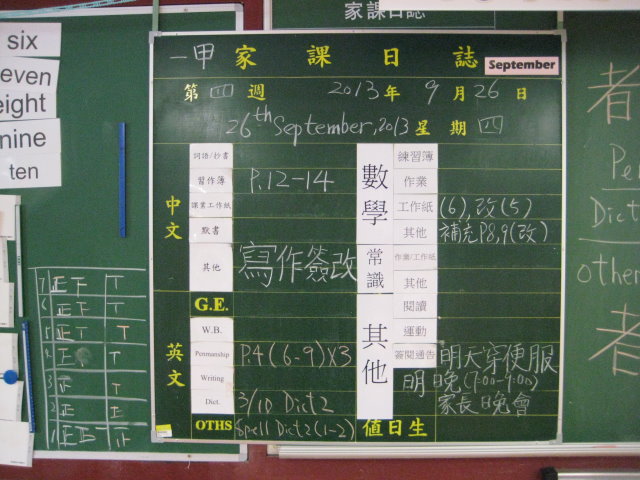 家課日誌
six
even
eight
nine
ten
一甲 家課日誌 September
第四週 2013年9月26日
26th September, 2013 星期四
中文
詞語/抄書
習作簿 P.12-14
課業工作紙
默書
其他 寫作簽改
英文
G.E.
W.B.
Penmanship P.4(6-9)X3
Writing
Dict. 3/10 Dict 2
OTHS Spell Dict 2(1-2)
數學
練習簿
作業
工作紙 (6),改(5)
其他 補充P8,9(改)
常識
作業/工作紙
其他
其他
閱讀
運動
簽閱通告 明天穿便服
明晚(7:00-9:00)
家長晚會
值日生
7 正下 T
6 正下 T
5 正下 T
4
3
2 正
1 正
者
Pe
Dict
othe
者